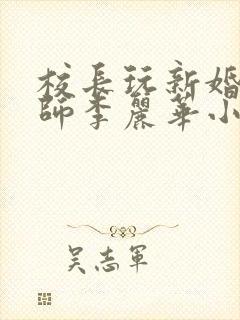 校長玩新婚
師李麗華小
吴志軍